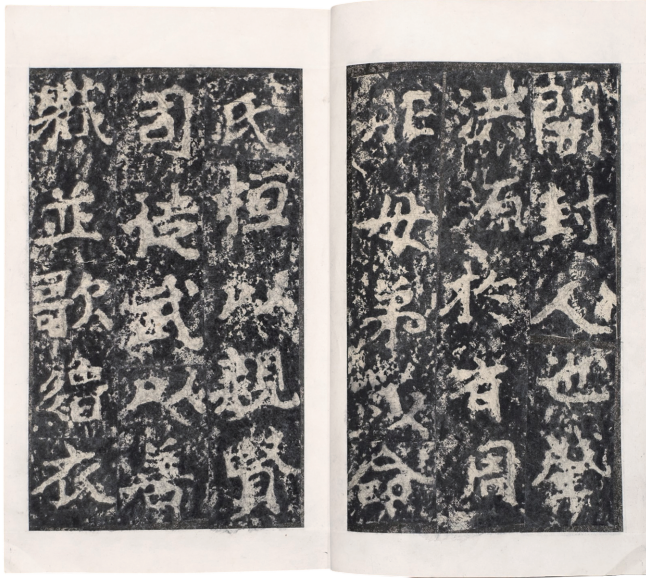 開封人也肇
洪源於有周
胙母弟以命
氏桓以親賢
司徒武以善
職並歌緇衣